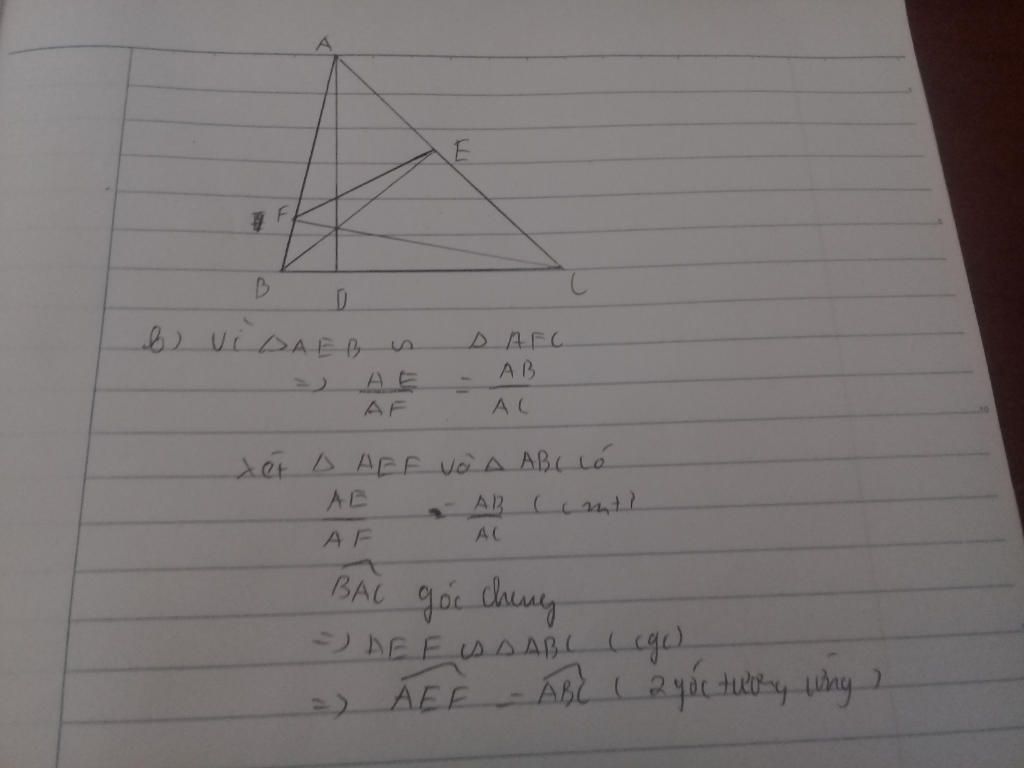 A
E
F
B D C
b) Vì △AEB ∽ △AFC
=> AE/AF = AB/AC
Xét △AEF và △ABC có
AE/AF = AB/AC (cmt)
BAC góc chung
=> AEF ∽ △ABC (cgc)
=> AEF = ABC (2 góc tương ứng)